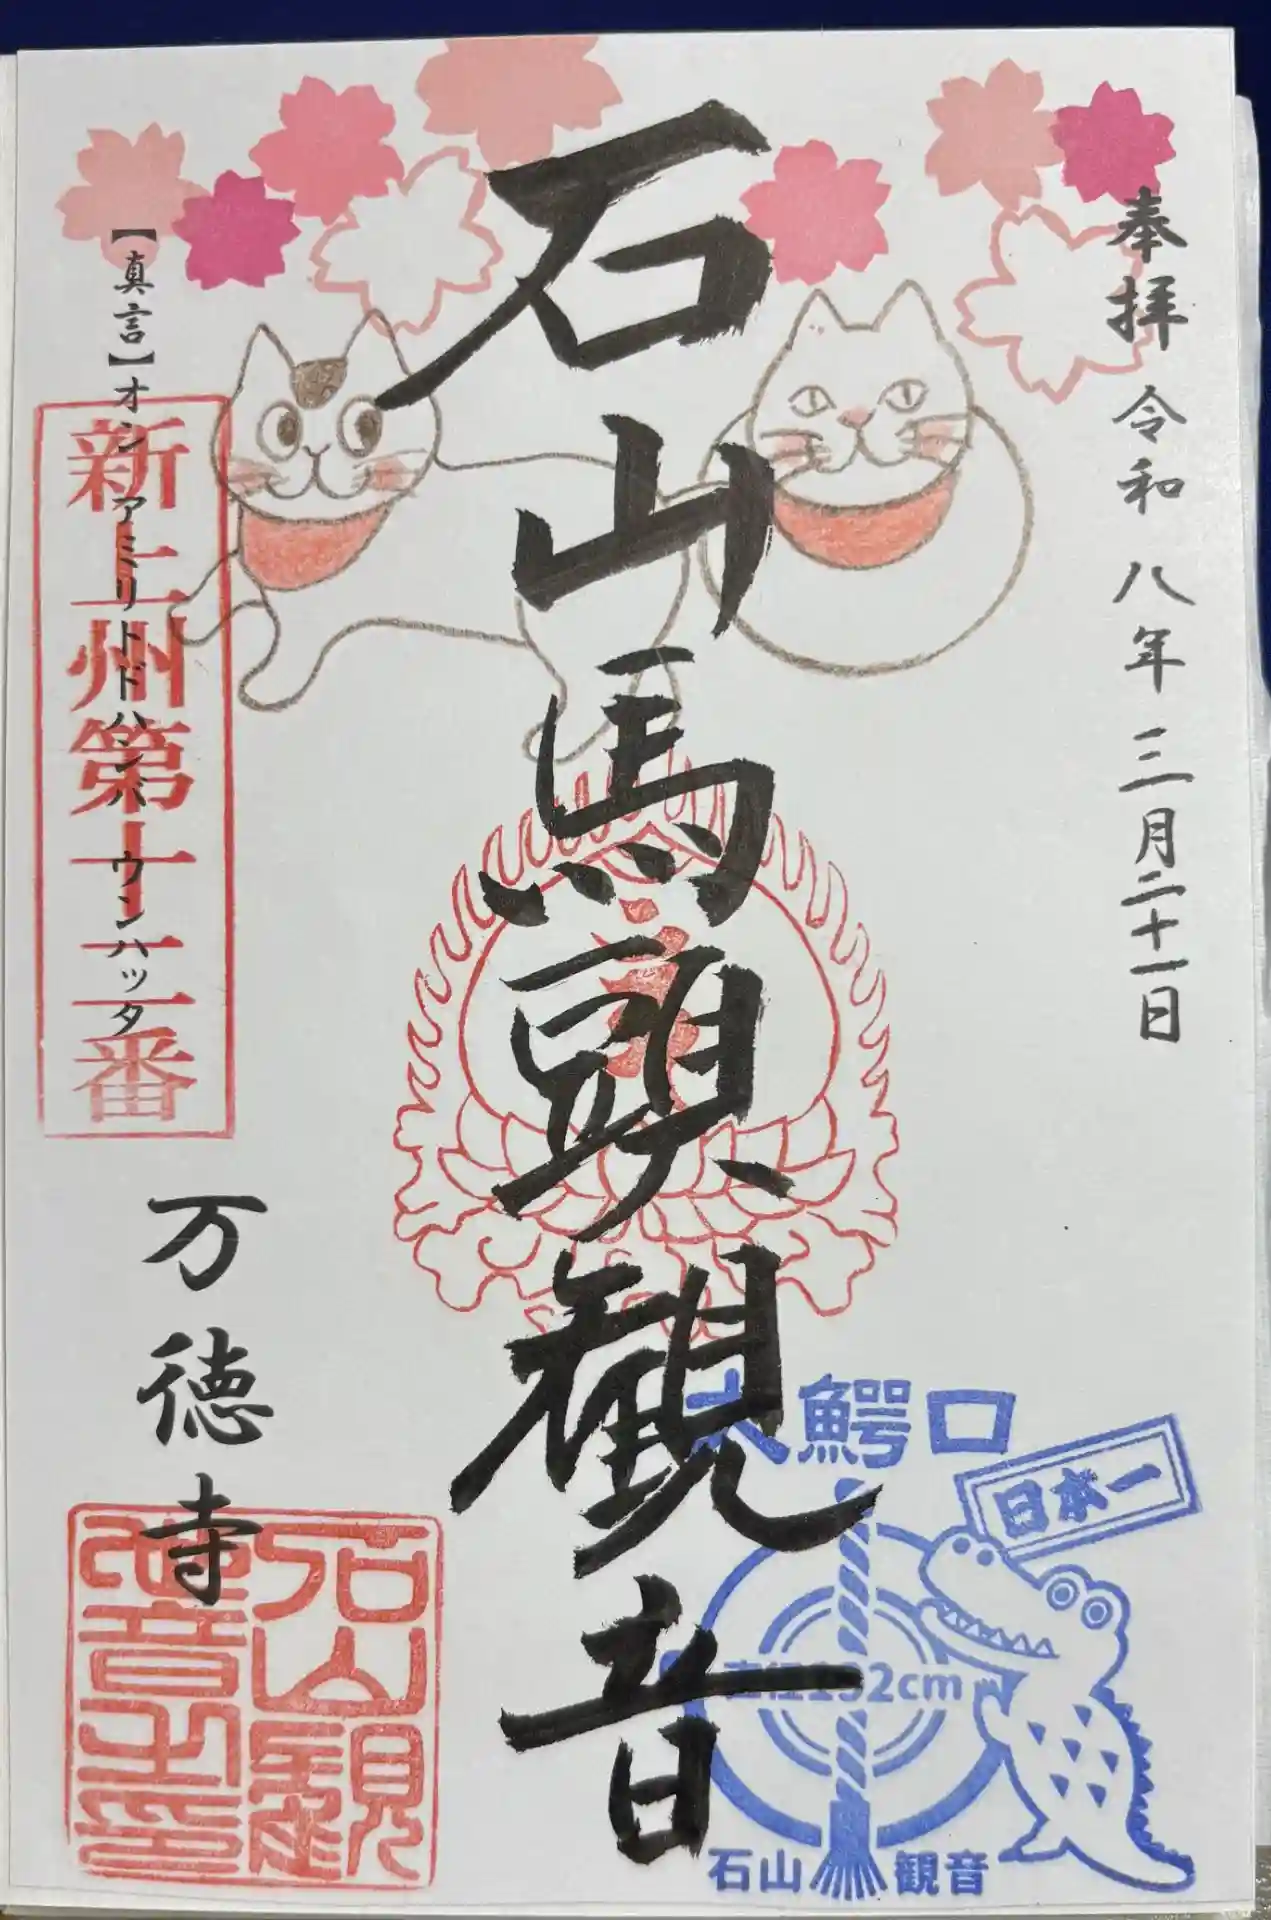 奉拝 令和八年三月二十一日
石山馬頭観音
【真言】オン アミリトドハンバ ウンハッタ
新上州第十二番
万徳寺
石山観
音之印
大鰐口
日本一
直径132cm
石山観音